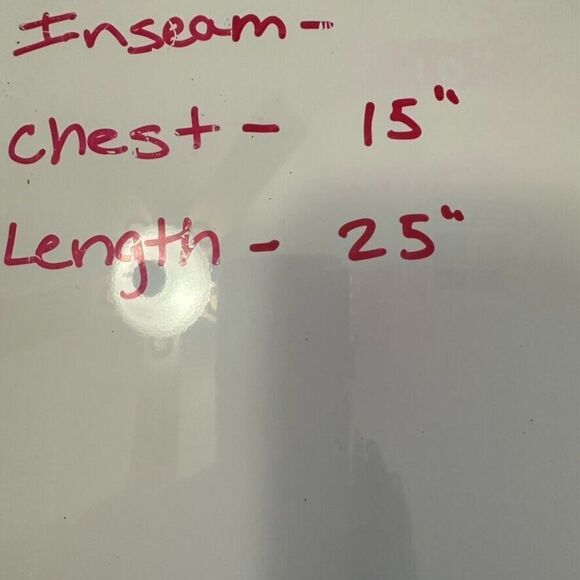 Inseam -
Chest - 15"
Length - 25"